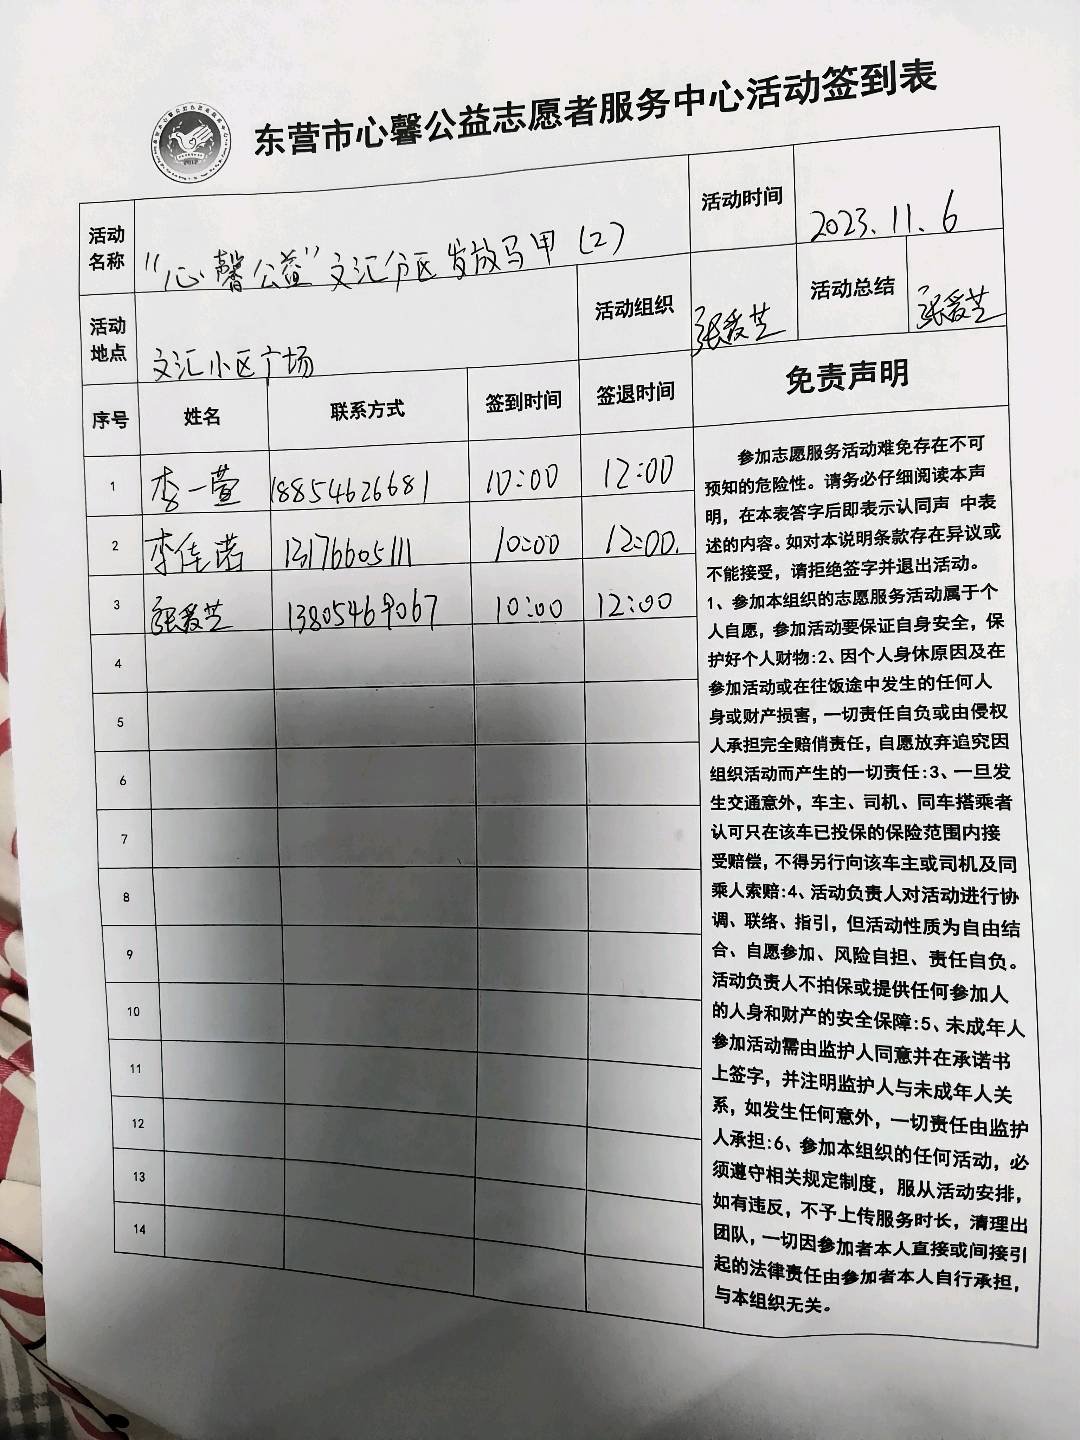 东营市心馨公益志愿者服务中心活动签到表
2012
活动名称 “心馨公益”文汇分区发放马甲（2） 活动时间 2023.11.6
活动地点 文汇小区广场 活动组织 张爱芝 活动总结 张爱芝
序号 姓名 联系方式 签到时间 签退时间 免责声明
1 李一萱 18854626681 10:00 12:00
2 李佳诺 13176605111 10:00 12:00.
3 张爱芝 13805469067 10:00 12:00
4
5
6
7
8
9
10
11
12
13
14
参加志愿服务活动难免存在不可
预知的危险性。请务必仔细阅读本声
明，在本表答字后即表示认同声 中表
述的内容。如对本说明条款存在异议或
不能接受，请拒绝签字并退出活动。
1、参加本组织的志愿服务活动属于个
人自愿，参加活动要保证自身安全，保
护好个人财物:2、因个人身休原因及在
参加活动或在往饭途中发生的任何人
身或财产损害，一切责任自负或由侵权
人承担完全赔俏责任，自愿放弃追究因
组织活动而产生的一切责任:3、一旦发
生交通意外，车主、司机、同车搭乘者
认可只在该车已投保的保险范围内接
受赔偿，不得另行向该车主或司机及同
乘人索赔:4、活动负责人对活动进行协
调、联络、指引，但活动性质为自由结
合、自愿参加、风险自担、责任自负。
活动负责人不拍保或提供任何参加人
的人身和财产的安全保障:5、未成年人
参加活动需由监护人同意并在承诺书
上签字，并注明监护人与未成年人关
系，如发生任何意外，一切责任由监护
人承担:6、参加本组织的任何活动，必
须遵守相关规定制度，服从活动安排，
如有违反，不予上传服务时长，清理出
团队，一切因参加者本人直接或间接引
起的法律责任由参加者本人自行承担，
与本组织无关。